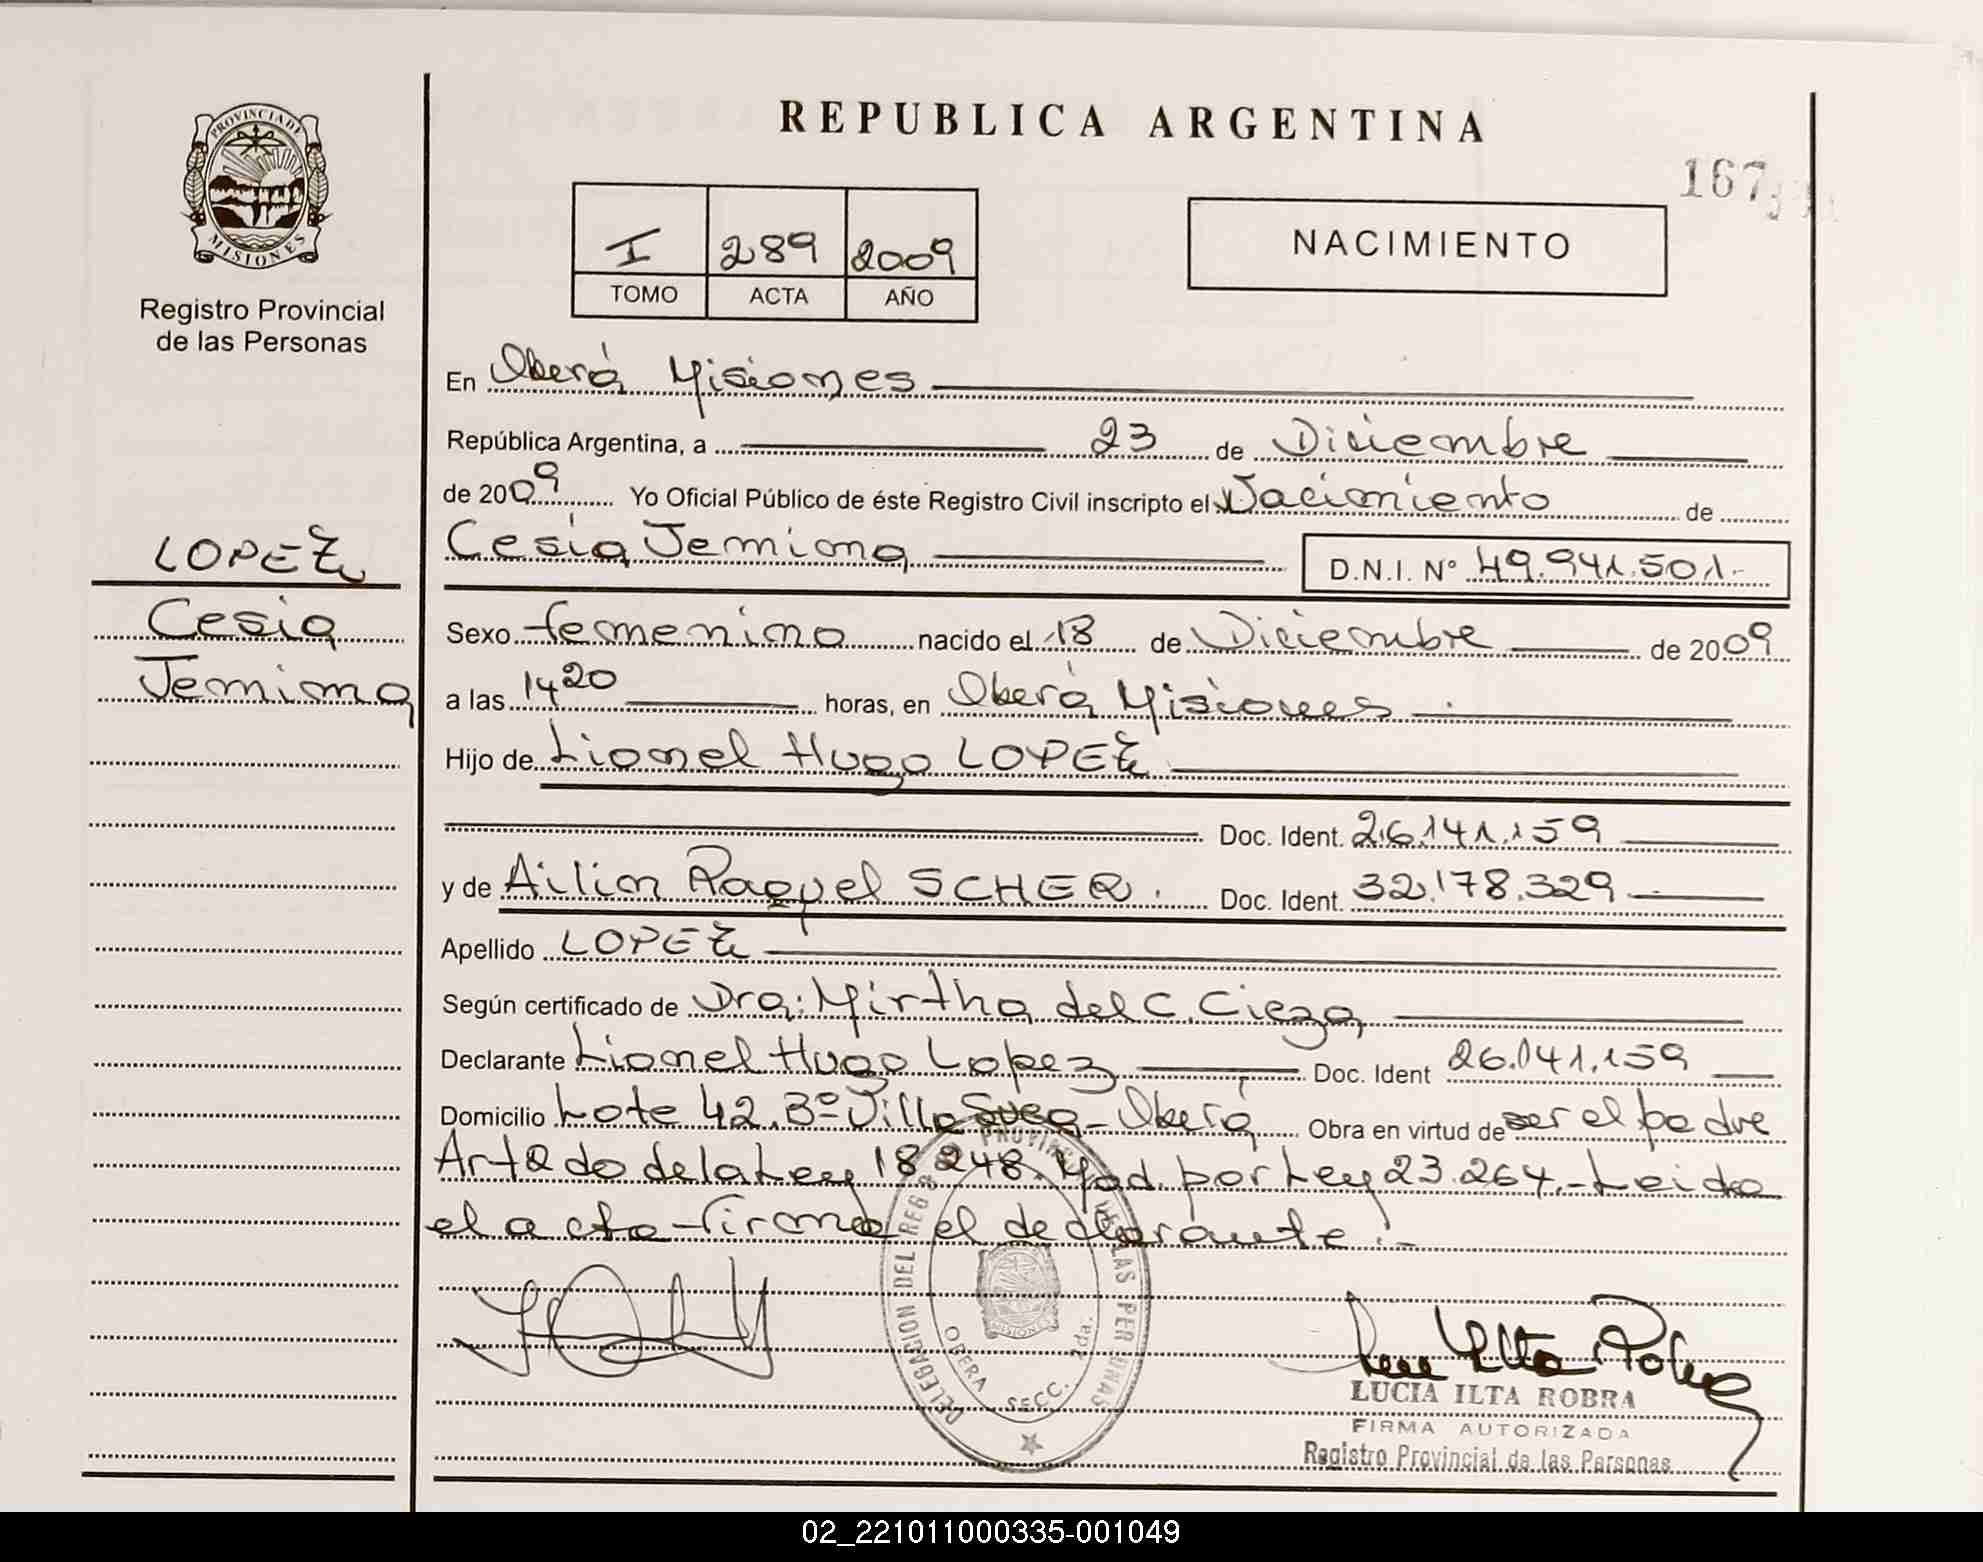 REPUBLICA ARGENTINA
167
PROVINCIA DE
MISIONES
Registro Provincial
de las Personas
I 289 2009
TOMO ACTA AÑO
NACIMIENTO
En Oberá Misiones
República Argentina, a 23 de Diciembre
de 2009 Yo Oficial Público de éste Registro Civil inscripto el Nacimiento de
Cesia Jemima D.N.I. N° 49.941.501.-
LOPEZ
Cesia
Jemima
Sexo femenino nacido el 18 de Diciembre de 2009
a las 14 20 horas, en Oberá Misiones
Hijo de Lionel Hugo LOPEZ
Doc. Ident. 26.141.159
y de Ailin Raquel SCHER. Doc. Ident. 32.178.329
Apellido LOPEZ
Según certificado de Dra: Mirtha del C. Cieza
Declarante Lionel Hugo Lopez Doc. Ident 26.041.159
Domicilio Lote 42. B° Villa Svea - Oberá Obra en virtud de ser el padre
Art 2do de la Ley 18 248. Mod. por Ley 23.264.- Leida
el acta firma el declarante.-
DELEGACION DEL REG PROVINCIAL DE LAS PERSONAS
MISIONES
OBERA SECC. 2da.
LUCIA ILTA ROBRA
FIRMA AUTORIZADA
Registro Provincial de las Personas
02_221011000335-001049